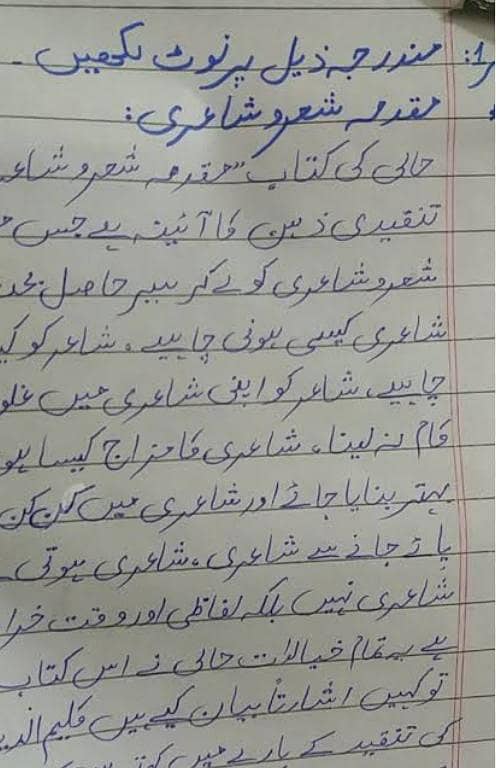 مندرجہ ذیل پر نوٹ لکھیں۔
مقدمہ شعر و شاعری:
حالی کی کتاب "مقدمہ شعر و شاعر
تنقیدی ذہن کا آئینہ ہے جس
شعر و شاعری کو لے کر سیر حاصل بحث
شاعری کیسی ہونی چاہیے، شاعر کو
چاہیے، شاعر کو اپنی شاعری میں غلو
کام نہ لینا، شاعری کا مزاج کیسا ہو
بہتر بنایا جائے اور شاعری میں کن کن
پائے جانے سے شاعری، شاعری ہوتی
شاعری نہیں بلکہ لفاظی اور وقت خرا
ہے یہ تمام خیالات حالی نے اس کتاب
تو کہیں اشارتاً بیان کیے ہیں کلیم الدی
کی تنقید کے بارے میں